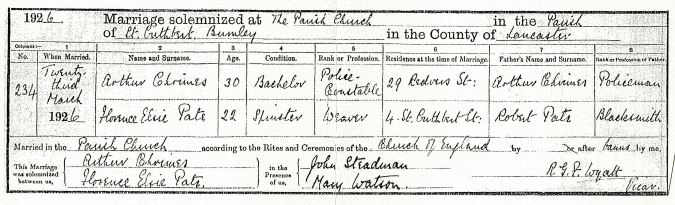 1926 Marriage solemnized at The Parish Church in the Parish
of St. Cuthbert, Burnley in the County of Lancaster
Columns:— 1 2 3 4 5 6 7 8
No. When Married. Name and Surname. Age. Condition. Rank or Profession. Residence at the time of Marriage. Father's Name and Surname. Rank or Profession of Father.
234 Twenty-third March 1926 Arthur Chrimes 30 Bachelor Police-Constable 29 Redvers St: Arthur Chrimes Policeman
Florence Elsie Pate 22 Spinster Weaver 4. St. Cuthbert St: Robert Pate Blacksmith
Married in the Parish Church according to the Rites and Ceremonies of the Church of England by or after banns by me,
This Marriage was solemnized between us, Arthur Chrimes in the Presence of us, John Steadman R.G.F. Wyatt
Florence Elsie Pate. Mary Watson. Vicar.